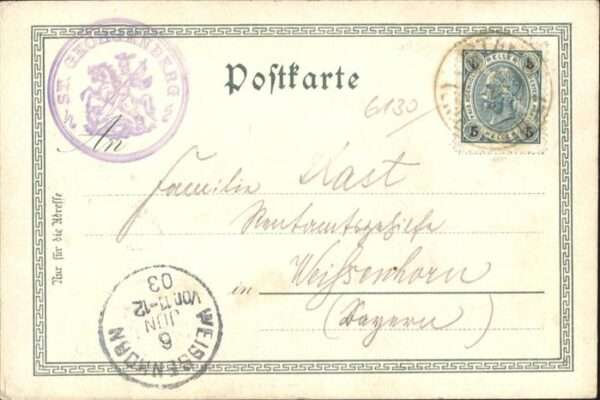 ST. GEORGENBERG
Postkarte
6130
An
Familie Kast
Rentamtsgehilfe
in Weißenhorn
(Bayern)
Nur für die Adresse
WEISSENHORN
6
JUN
Vor. 11-12
03
5 HELLER 5